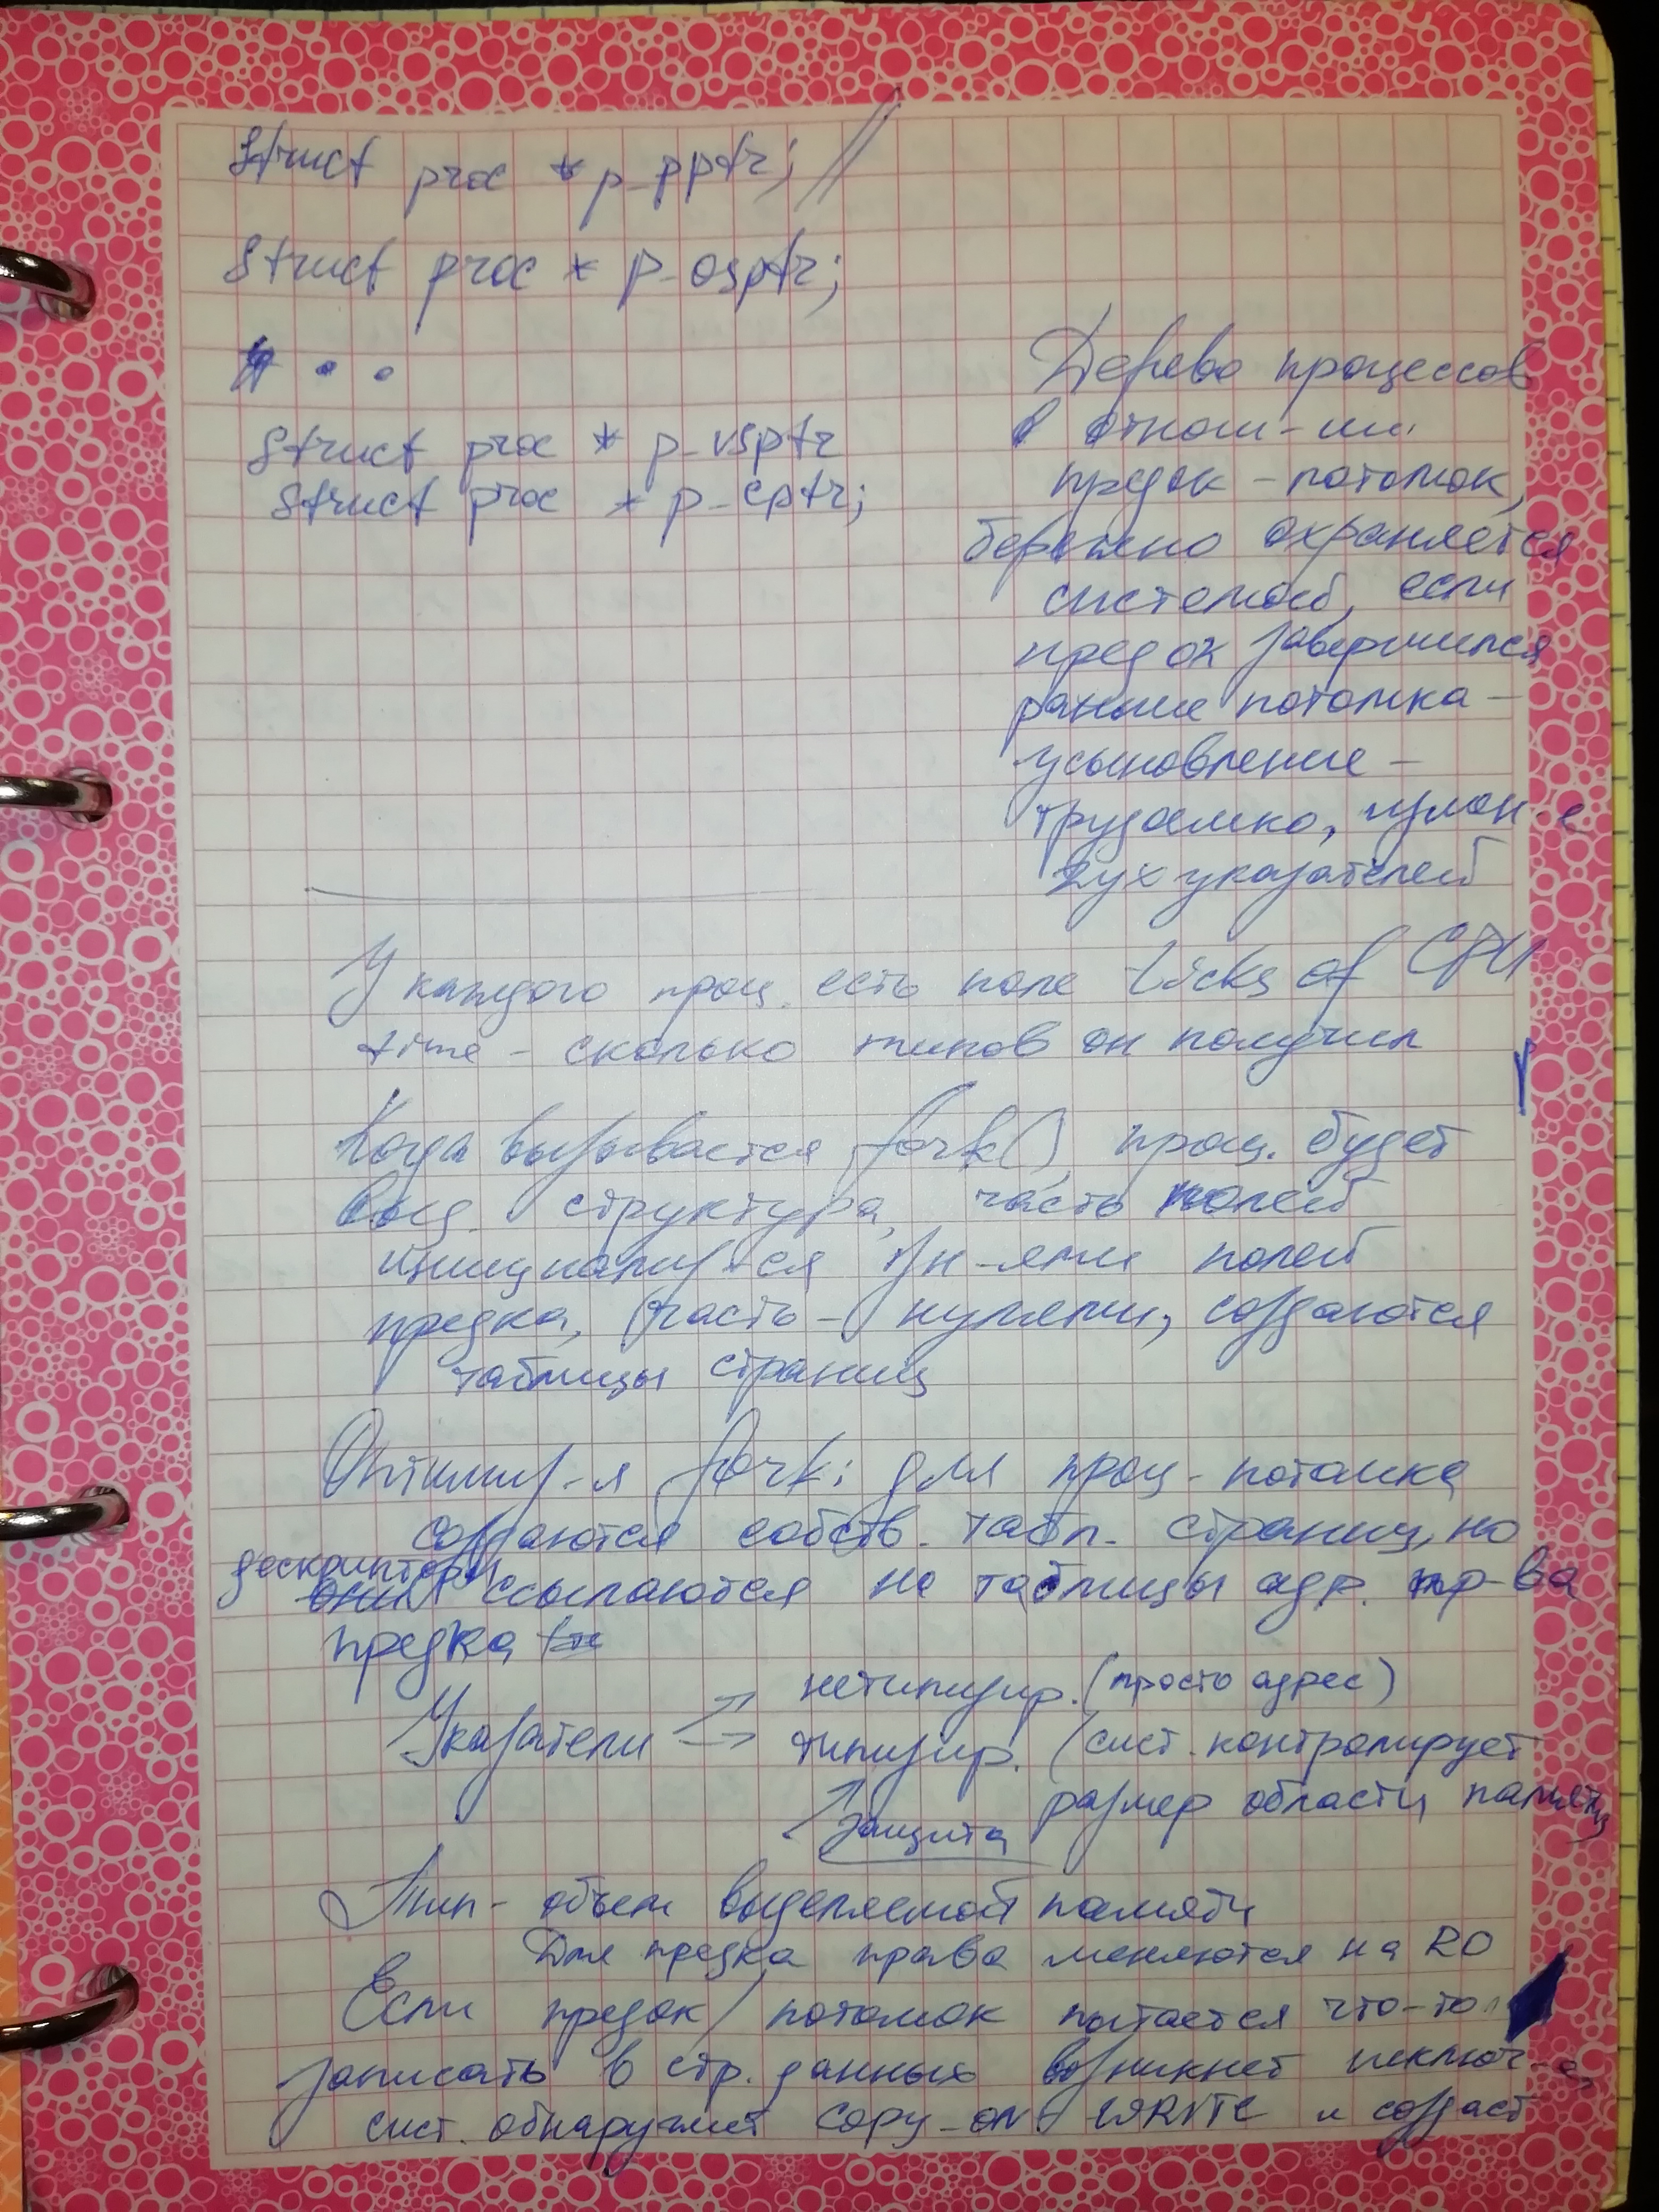 struct proc * p_pptr; //
struct proc * p_osptr;
. .
struct proc * p_vsptr
struct proc * p_cptr;
Дерево процессов
в отнош-ии
предок - потомок,
бережно охраняется
системой, если
предок завершился
раньше потомка -
усыновление -
трудоемко, измен-е
2ух указателей
У каждого проц. есть поле ticks of CPU
time - сколько тиков он получил
Когда вызывается fork(), проц. будет
выд. структура, часть полей
инициализ-ся зн-ями полей
предка, часть - нулями, создаются
таблицы страниц
Оптимиз-я fork: для проц-потомка
создаются собств. табл. страниц, но
дескрипторы ссылаются на таблицы адр. пр-ва
предка
Указатели
нетипизир. (просто адрес)
типизир. (сист. контролирует
размер области памяти
защита
Тип - объем выделяемой памяти
Для предка права меняются на RO
Если предок/потомок пытается что-то
записать в стр. данных возникнет исключ-е,
сист. обнаружит copy-on WRITE и создаст